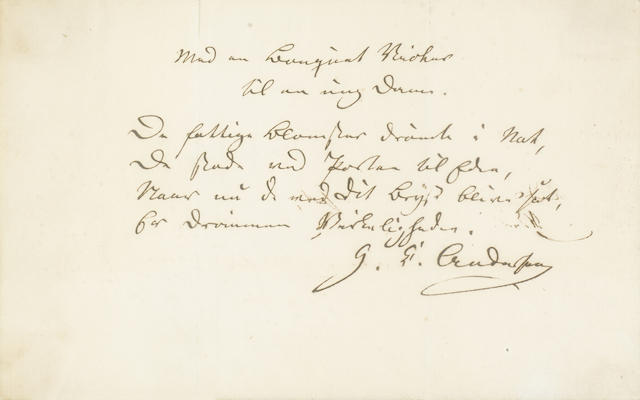 Med en Bouquet Violer
til en ung Dame.
De fattige Blomster drömte i Nat,
De stode ved Porten til Eden,
Naar nu de ved dit Bryst blive sat,
Er Drömmen Virkeligheden.
H. C. Andersen